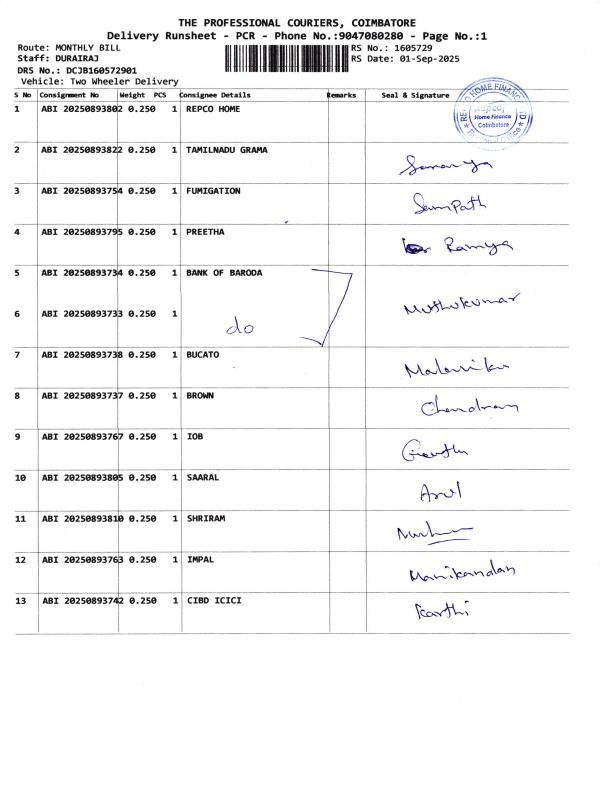 THE PROFESSIONAL COURIERS, COIMBATORE
Delivery Runsheet - PCR - Phone No.:9047080280 - Page No.:1
Route: MONTHLY BILL RS No.: 1605729
Staff: DURAIRAJ RS Date: 01-Sep-2025
DRS No.: DCJB160572901
Vehicle: Two Wheeler Delivery
S No Consignment No Weight PCS Consignee Details Remarks Seal & Signature
1 ABI 20250893802 0.250 1 REPCO HOME Repco Home Finance Coimbatore
2 ABI 20250893822 0.250 1 TAMILNADU GRAMA
3 ABI 20250893754 0.250 1 FUMIGATION SamPath
4 ABI 20250893795 0.250 1 PREETHA Ramya
5 ABI 20250893734 0.250 1 BANK OF BARODA
6 ABI 20250893733 0.250 1 do Muthukumar
7 ABI 20250893738 0.250 1 BUCATO
8 ABI 20250893737 0.250 1 BROWN Chandran
9 ABI 20250893767 0.250 1 IOB
10 ABI 20250893805 0.250 1 SAARAL Arul
11 ABI 20250893810 0.250 1 SHRIRAM
12 ABI 20250893763 0.250 1 IMPAL Manikandan
13 ABI 20250893742 0.250 1 CIBD ICICI Karthi